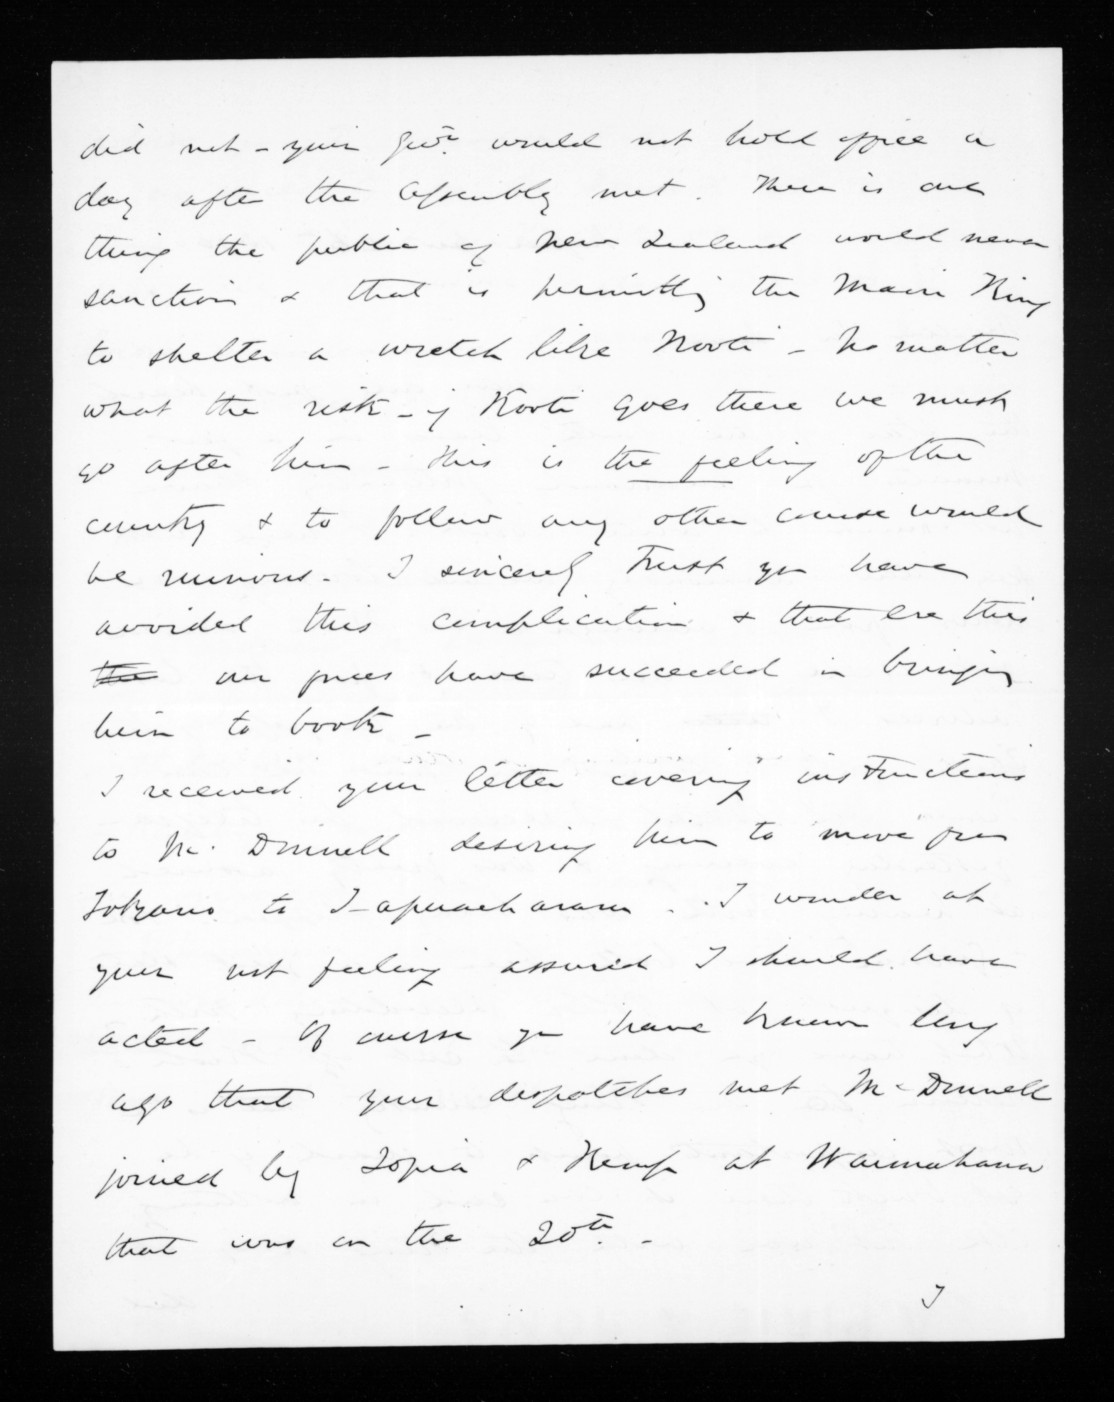 did not - your Govt. would not hold office a
day after the Assembly met. There is one
thing the public of New Zealand would never
sanction & that is permitting the Maori King
to shelter a wretch like Kooti - No matter
what the risk - if Kooti goes there we must
go after him - this is the feeling of the
country & to follow any other course would
be ruinous - I sincerely trust you have
avoided this complication & that ere this
the our forces have succeeded in bringing
him to book -
I received your letter covering instructions
to Mc. Donnell desiring him to move from
Tokano to Tapuaehararu - I wonder at
your not feeling assured I should have
acted - Of course you have known long
ago that your despatches met McDonnell
joined by Topia & Kemp at Waimahana
that was on the 20th. -
I